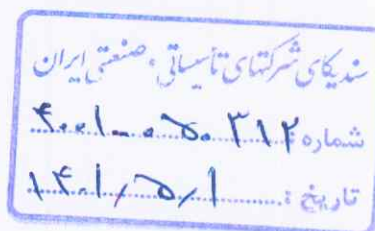 سندیکای شرکتهای تأسیساتی و صنعتی ایران
شماره: ۴۰۰۱-۰۵۰۳۱۲
تاریخ: ۱۴۰۱/۵/۱